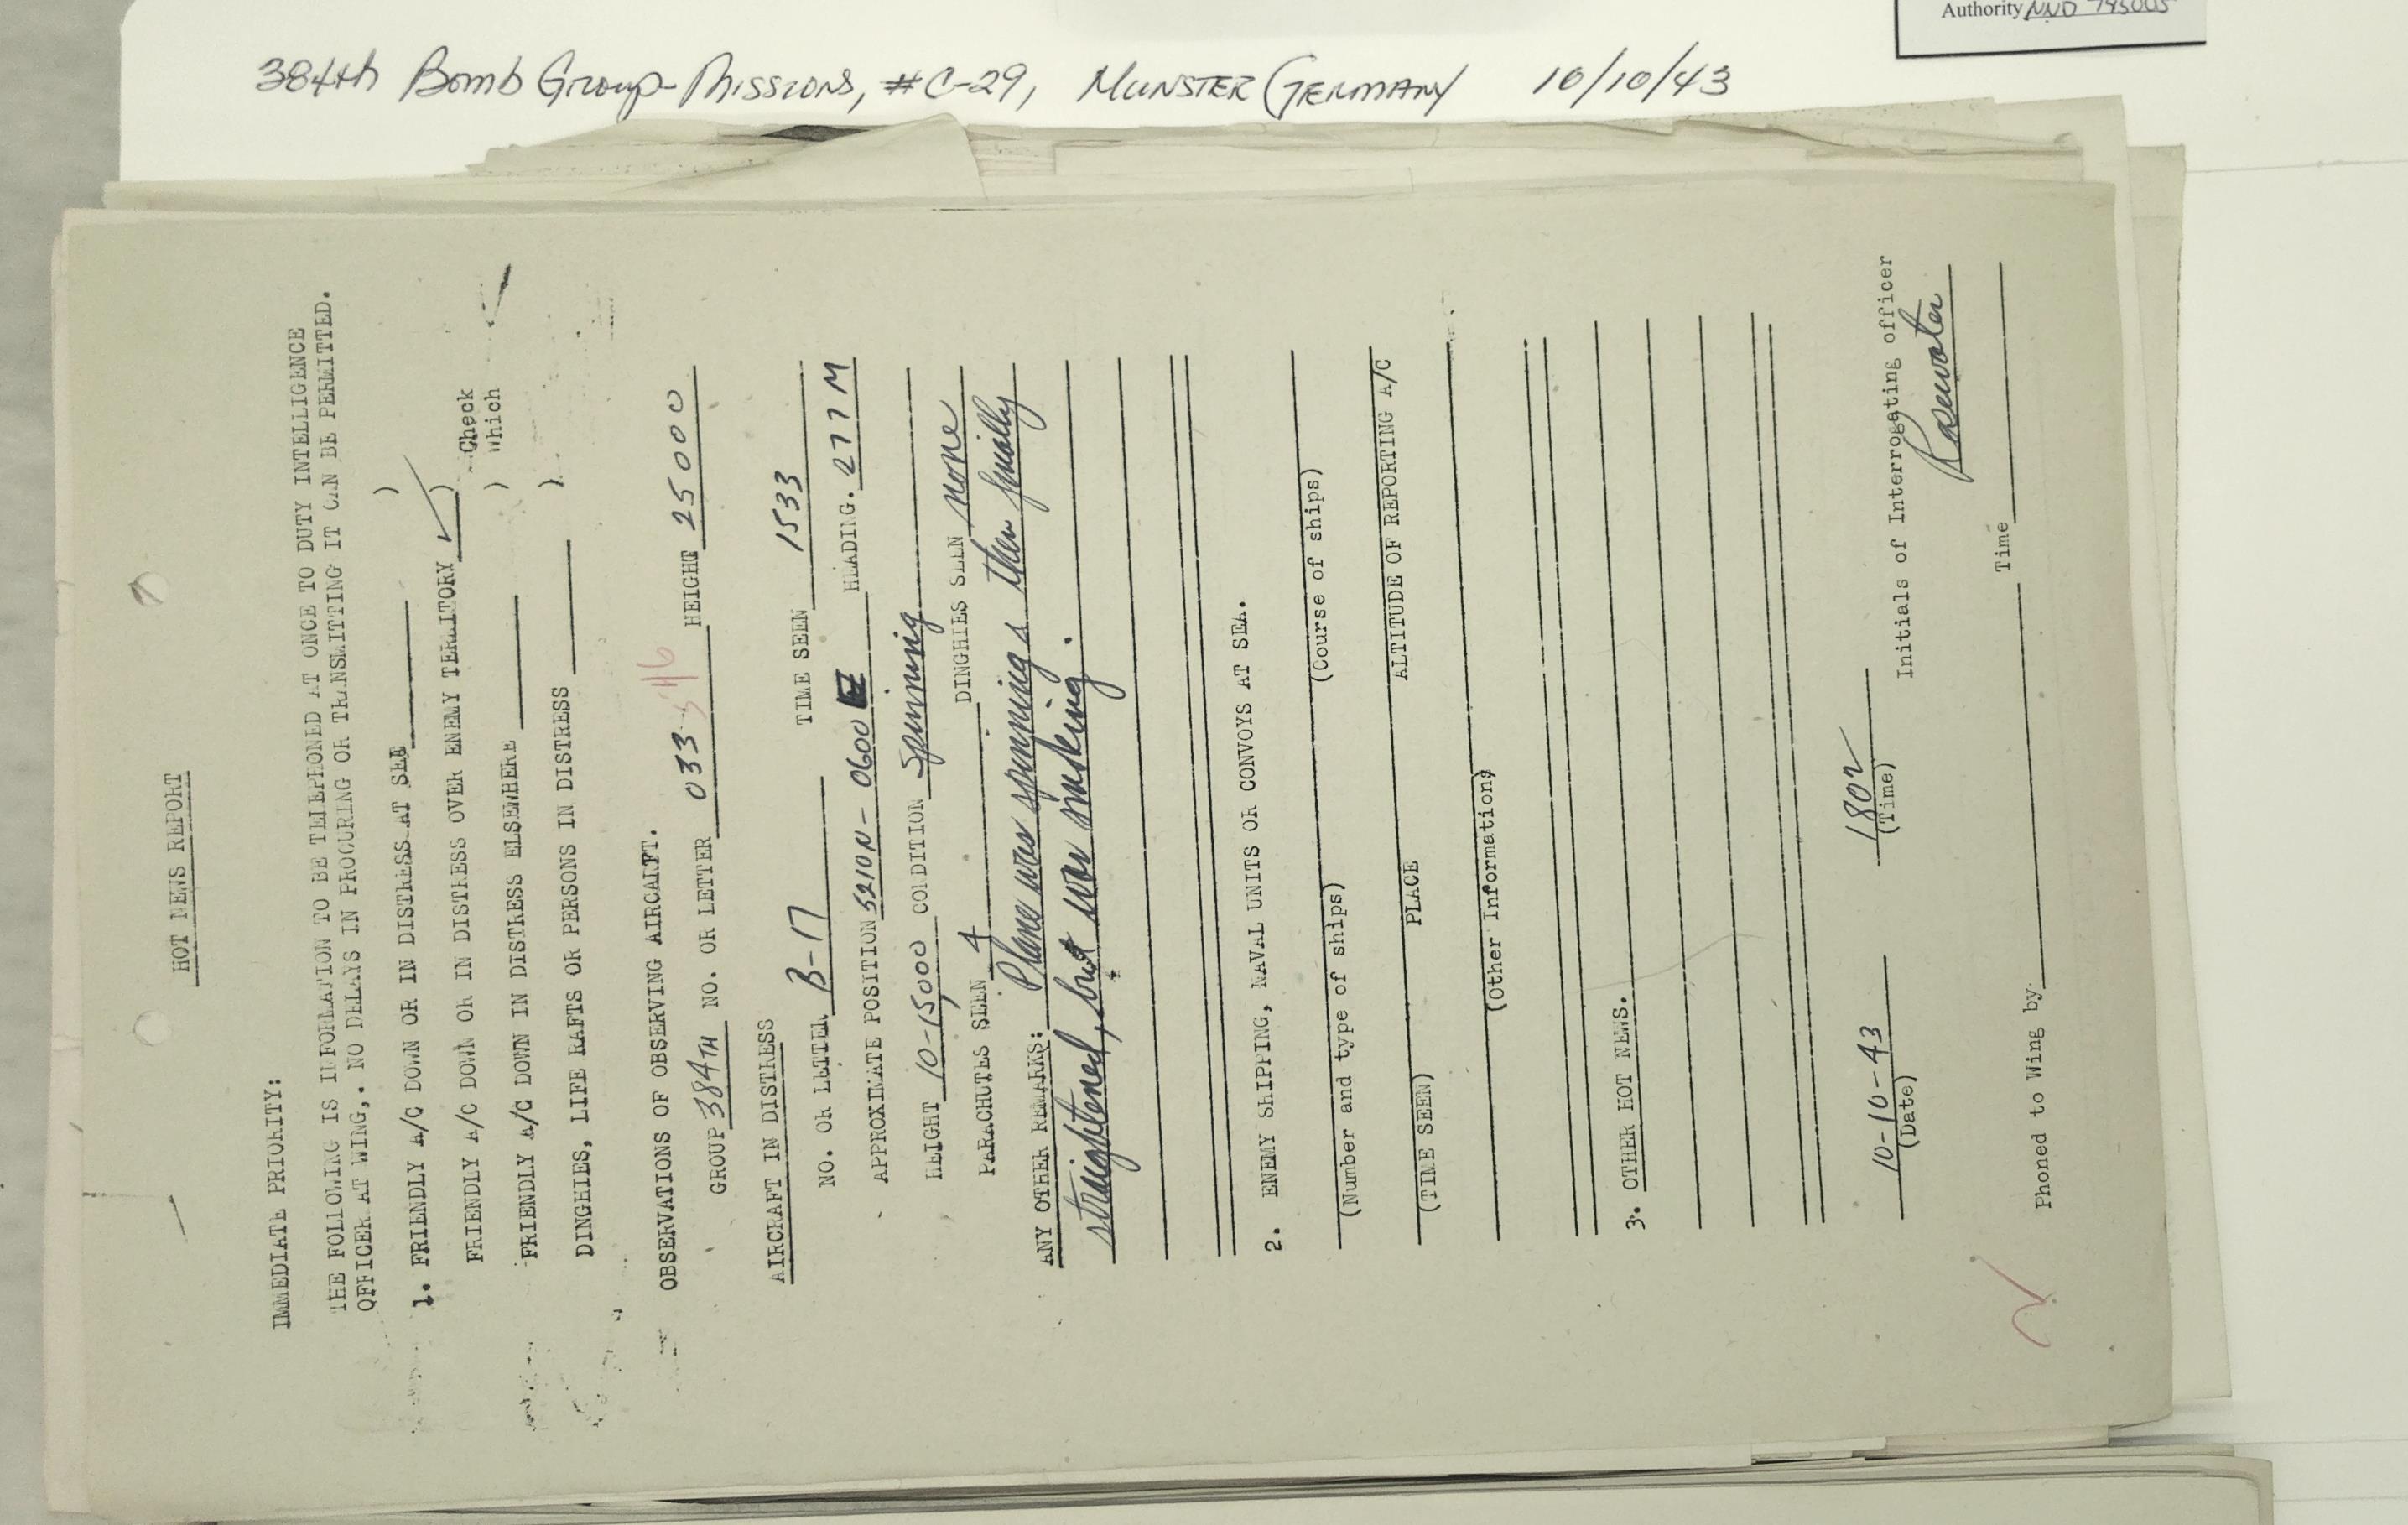 Authority NND 745005
384th Bomb Group-Missions, #C-29, MUNSTER GERMANY 10/10/43
HOT NEWS REPORT
IMMEDIATE PRIORITY:
THE FOLLOWING IS INFORMATION TO BE TELEPHONED AT ONCE TO DUTY INTELLIGENCE
OFFICER AT WING,. NO DELAYS IN PROCURING OR TRANSMITTING IT CAN BE PERMITTED.
1. FRIENDLY A/C DOWN OR IN DISTRESS AT SEA )
FRIENDLY A/C DOWN OR IN DISTRESS OVER ENEMY TERRITORY ✓ ) Check
FRIENDLY A/C DOWN IN DISTRESS ELSEWHERE ) Which
DINGHIES, LIFE RAFTS OR PERSONS IN DISTRESS )
OBSERVATIONS OF OBSERVING AIRCRAFT.
GROUP 384TH NO. OR LETTER 033 546 HEIGHT 25000
AIRCRAFT IN DISTRESS
NO. OR LETTER B-17 TIME SEEN 1533
APPROXIMATE POSITION 5210N - 0600 E HEADING. 277 M
HEIGHT 10-15,000 CONDITION Spinning
PARACHUTES SEEN 4 DINGHIES SEEN none
ANY OTHER REMARKS: Plane was spinning & then finally
straightened, but was smoking.
2. ENEMY SHIPPING, NAVAL UNITS OR CONVOYS AT SEA.
(Number and type of ships) (Course of ships)
(TIME SEEN) PLACE ALTITUDE OF REPORTING A/C
(Other Information)
3. OTHER HOT NEWS.
10-10-43 1802
(Date) (Time) Initials of Interrogating officer
Rosewater
Phoned to Wing by Time